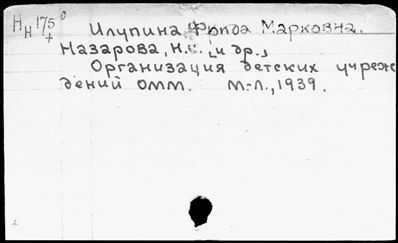 Нн 175°
Илупина, Фрида Марковна.
Назарова, Н.С. [и др.,
Организация детских учреж
дений ОММ. М.-Л., 1939.